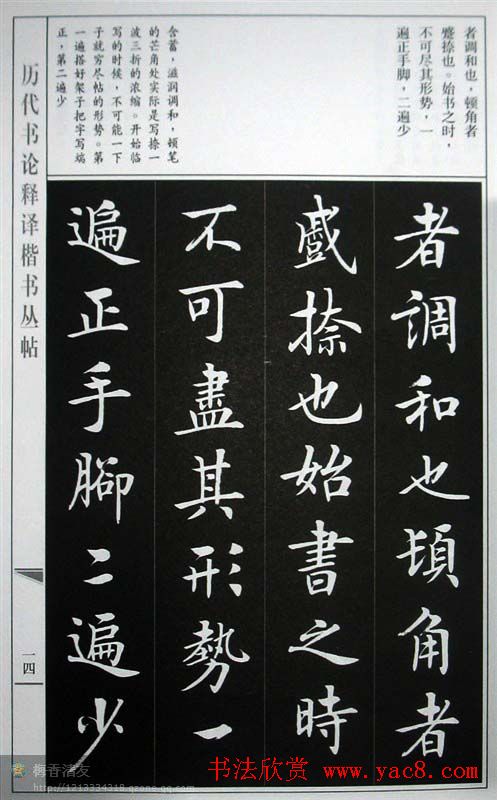 者调和也，顿角者
蹙捺也。始书之时，
不可尽其形势，一
遍正手脚，二遍少
含蓄，滋润调和，顿笔
的芒角处实际是写捺一
波三折的浓缩。开始临
写的时候，不可能一下
子就穷尽帖的形势。第
一遍搭好架子把字写端
正，第二遍少
者調和也頓角者
蹙捺也始書之時
不可盡其形勢一
遍正手腳二遍少
历代书论释译楷书丛帖
一四
http://1213334318.qzone.qq.com
书法欣赏 www.yac8.com